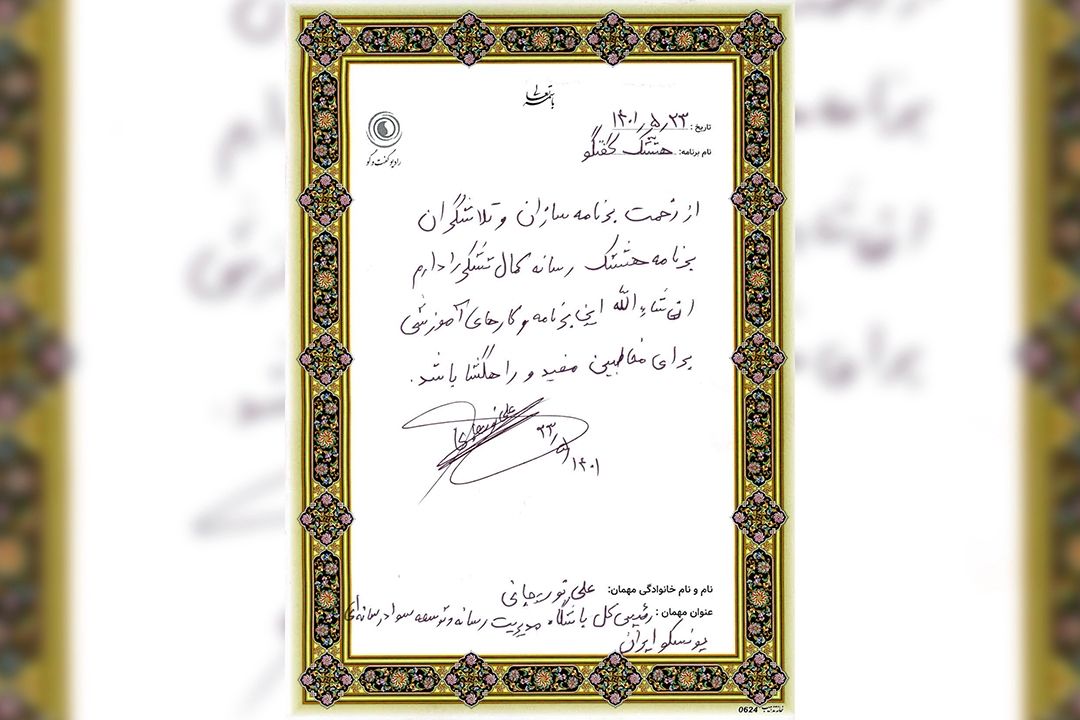 باسمه تعالی
رادیو گفت و گو
تاریخ: ۱۴۰۱/۵/۲۳
نام برنامه: هشتگ گفتگو
از زحمت برنامه سازان و تلاشگران
برنامه هشتگ رسانه کمال تشکر را دارم
ان شاءالله این برنامه و کارهای آموزشی
برای مخاطبین مفید و راهگشا باشد.
۲۳/۵/۱۴۰۱
نام و نام خانوادگی مهمان: علی
عنوان مهمان: رئیس کل باشگاه مدیریت رسانه و توسعه سواد رسانه‌ای
یونسکو ایران
0624